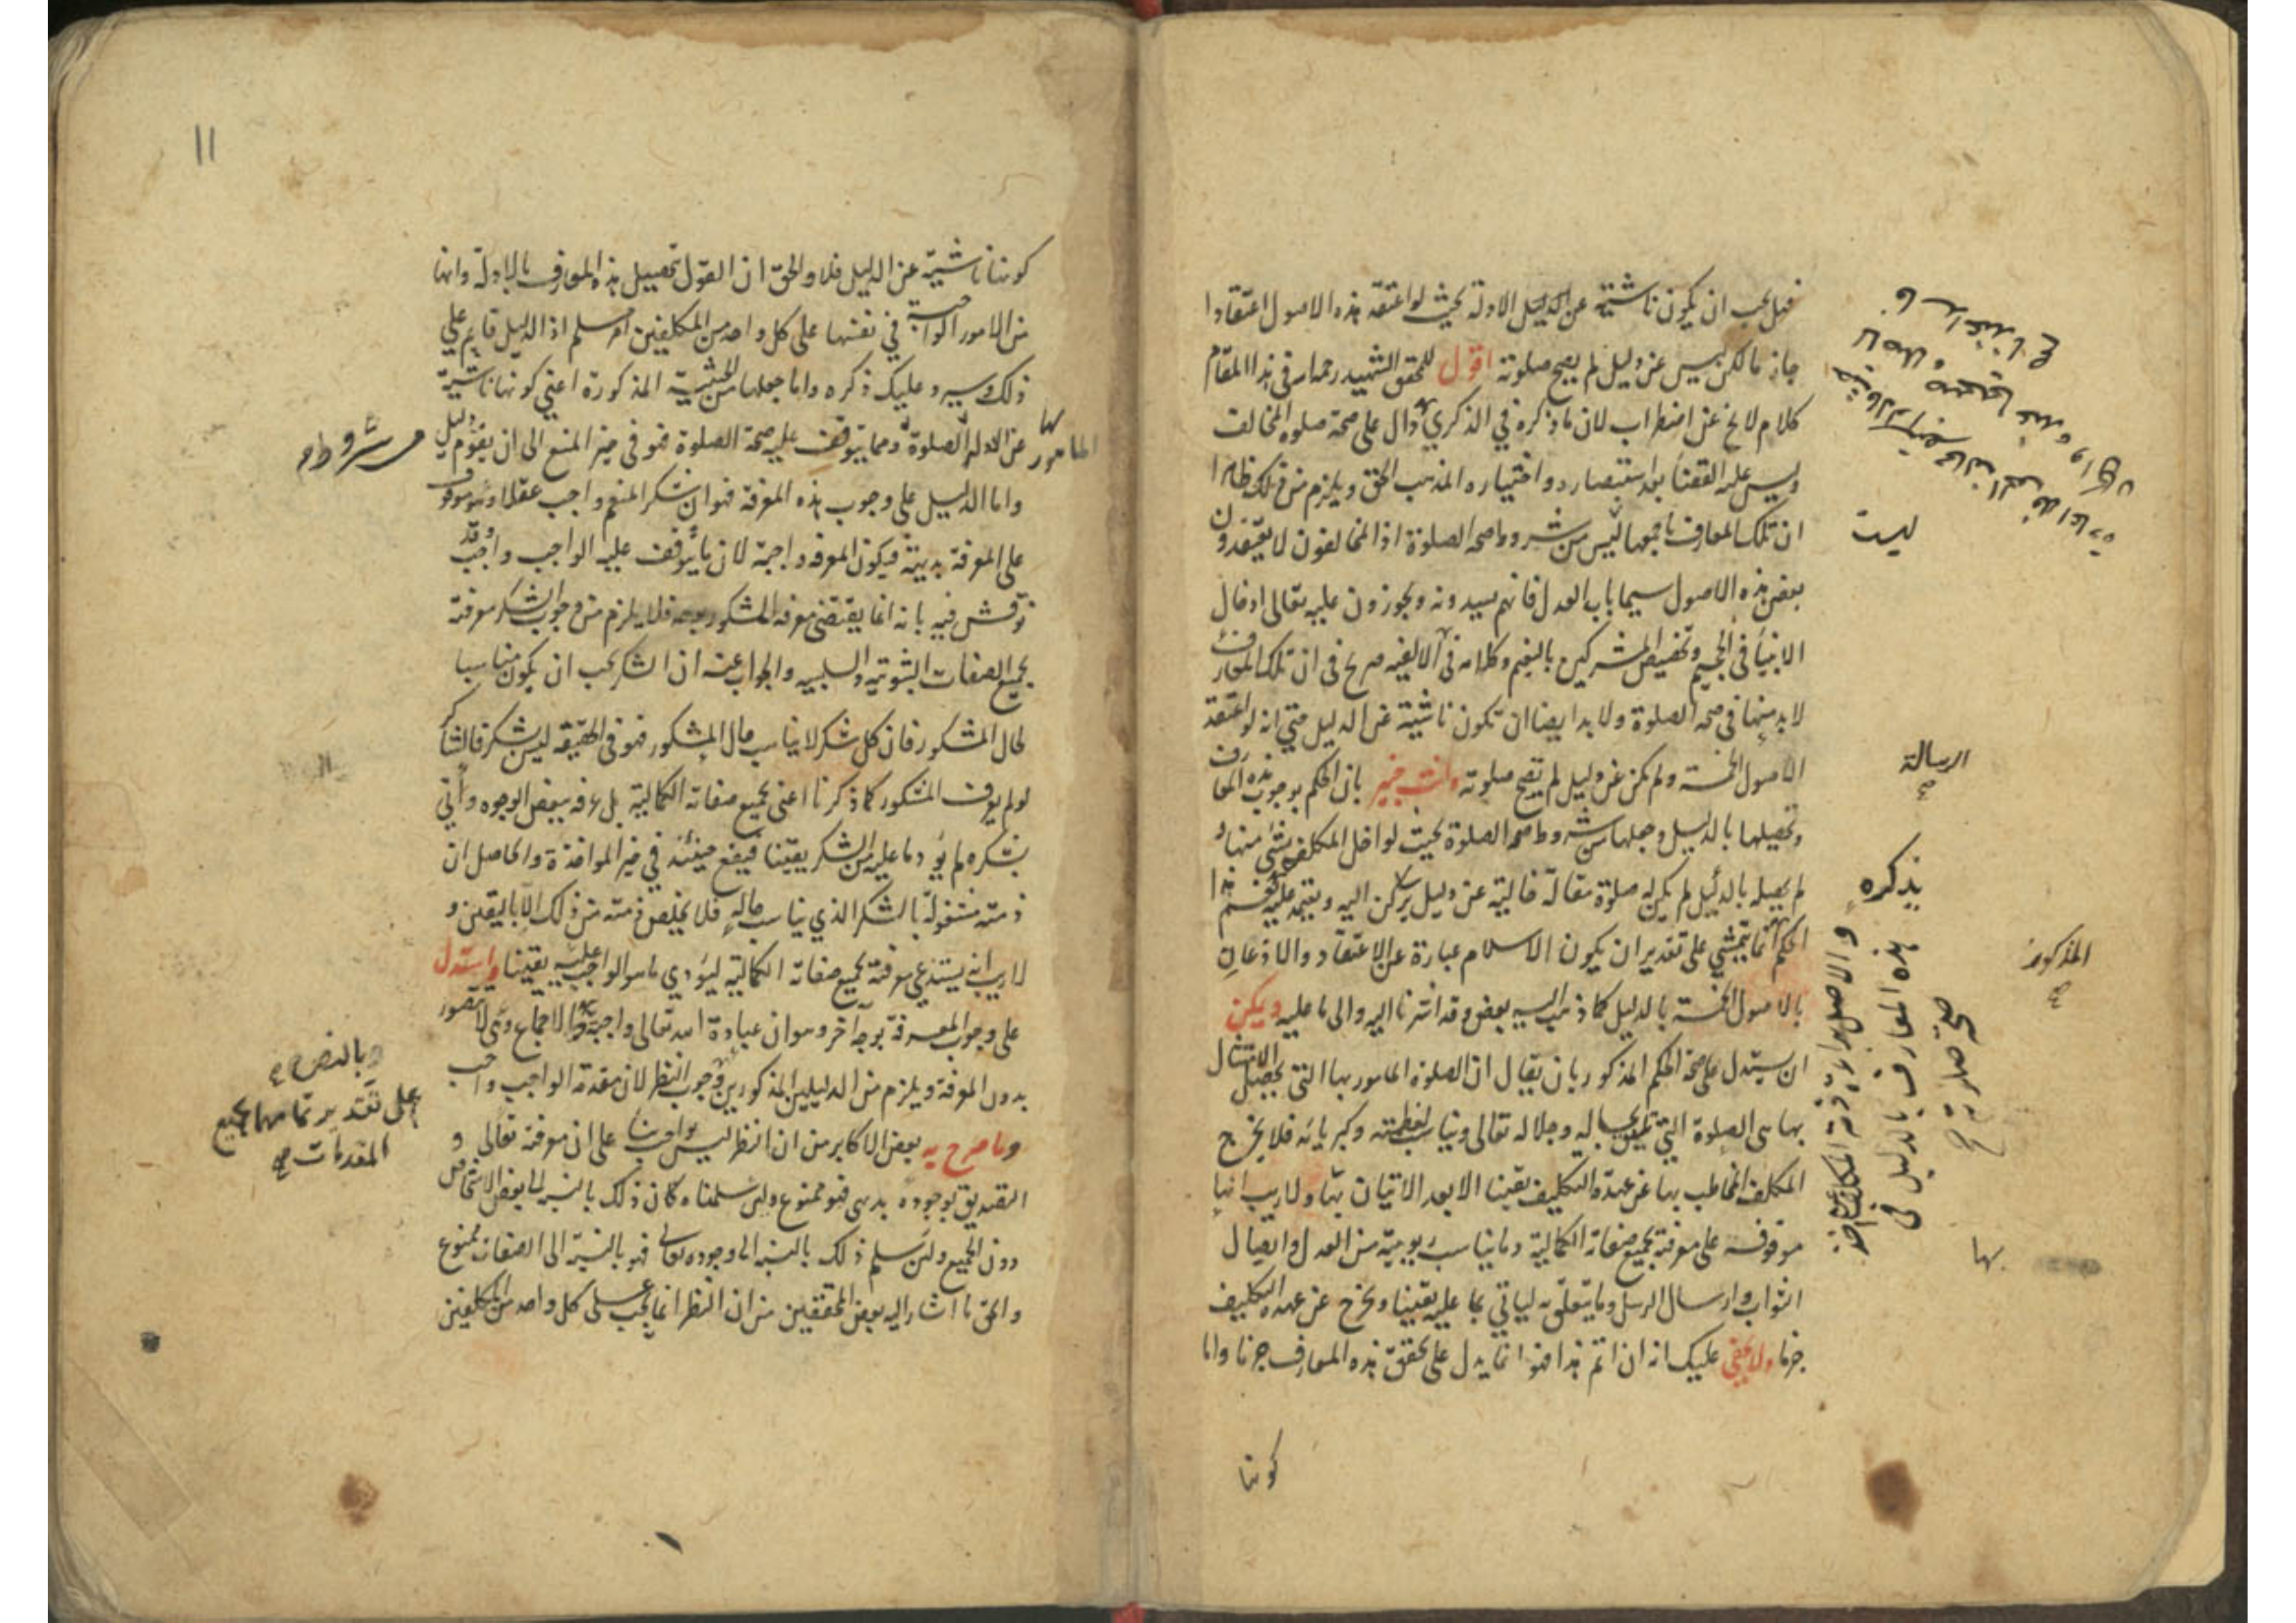 فهل يجب ان يكون ناشية عن الدليل الادلة بحيث لو اعتقد هذه الاصول اعتقادا
جازما لكن ليس عن دليل لم يصح صلوته اقول للمحقق الشهيد رحمه الله في هذا المقام
كلام لا يخ عن اضطراب لان ما ذكره في الذكرى دال على صحة صلوه المخالف
وليس عليه القضا بعد استبصاره واختياره المذهب الحق ويلزم من ذلك ظاهرا
ان تلك المعارف باجمعها ليس من شروط صحه الصلوة اذ المخالفون لا يعتقدون
بعض هذه الاصول سيما باب العدل فانهم يسدونه ويجوزون عليه تعالى ادخال
الانبيأ في الجحيم وتخصيص المشركين بالنعيم وكلامه في الالفيه صريح في ان تلك المعارف
لا بد منها في صحه الصلوة ولا بد ايضا ان تكون ناشية عن الدليل حتى انه لو اعتقد
الاصول الخمسة ولم يكن عن دليل لم تصح صلوته وانت خبير بان الحكم بوجوب هذه المعارف
وتحصيلها بالدليل وجعلها من شروط صحه الصلوة بحيث لو اخل المكلف بشئ منها و
لم يحصله بالدليل لم يكن له صلوة مقالة خالية عن دليل يركن اليه ويعتمد عليه نعم هذا
الحكم انما يتمشي على تقدير ان يكون الاسلام عبارة عن الاعتقاد والاذعان
بالاصول الخمسة بالدليل كما ذهب اليه بعض وقد اشرنا اليه والى ما عليه ويمكن
ان يستدل على صحة الحكم المذكور بان يقال ان الصلوة المامور بها التي يحصل الامتثال
بها هي الصلوة التي تليق بحاله وجلاله تعالى ويناسب لعظمته وكبريائه فلا يخرج
المكلف المخاطب بها عن عهدة التكليف يقينا الا بعد الاتيان بها ولا ريب انها
موقوفه على معرفته بجميع صفاته الكمالية وما يناسب ربوبيته من العدل وايصال
الثواب وارسال الرسل وما يتعلق به لياتي بما عليه يقينا ويخرج عن عهده التكليف
جزما ولا يخفى عليك انه ان تم هذا فهو انما يدل على تحقق هذه المعارف جزما واما
كونها
ليست
الرسالة
يذكره
المذكورة
والاصل براءة ذمة المكلف
هذه المعارف بالدليل في
صحة صلوته
بها
11
كونها ناشية عن الدليل فلا والحق ان القول بتحصيل هذه المعارف بالادلة وانها
من الامور الواجبة في نفسها على كل واحد من المكلفين امر مسلم اذ الدليل قايم على
ذلك وسيرد عليك ذكره واما جعلها من الحيثية المذكورة اعني كونها ناشية
عن الادلة الصلوة ومما يتوقف عليه صحة الصلوة فهو في حيز المنع الى ان يقوم دليل
واما الدليل على وجوب هذه المعرفة فهو ان شكر المنعم واجب عقلا وهو موقوف
على المعرفة بديهة فيكون المعرفه واجبة لان ما يتوقف عليه الواجب واجب وقد
نوقش فيه بانه انما يقتضي معرفه المشكور بوجه فلا يلزم من وجوب الشكر معرفته
بجميع الصفات الثبوتيه والسلبيه والجواب عنه ان الشكر يجب ان يكون مناسبا
لحال المشكور فان كل شكر لا يناسب حال المشكور فهو في الحقيقه ليس بشكر فالشاكر
لو لم يعرف المشكور كما ذكرنا اعنى بجميع صفاته الكمالية بل عرفه ببعض الوجوه واتى
بشكره لم يؤد ما عليه من الشكر يقينا فيقع حينئذ في حيز المواخذة والحاصل ان
ذمته مشغولة بالشكر الذي يناسب حاله فلا يخلص ذمته من ذلك الا باليقين و
لا ريب انه يستدعي معرفته بجميع صفاته الكمالية ليؤدي ما هو الواجب عليه يقينا واستدل
على وجوب المعرفة بوجه آخر وهو ان عبادة الله تعالى واجبة بالاجماع وهي لا تتصور
بدون المعرفة ويلزم من الدليلين المذكورين وجوب النظر لان مقدمة الواجب واجب
وما صرح به بعض الاكابر من ان النظر ليس بواجب بنا على ان معرفته تعالى و
التصديق بوجوده بديهى فهو ممنوع ولئن سلمنا وكان ذلك بالنسبة الى بعض الاشخاص
دون الجميع ولئن سلم ذلك بالنسبة الى وجوده تعالى فهو بالنسبة الى الصفات ممنوع
والحق ما اشار اليه بعض المحققين من ان النظر انما يجب على كل واحد من المكلفين
المامور بها
مشروطه
وبالنص
على تقدير تمامها بجميع
المقدمات